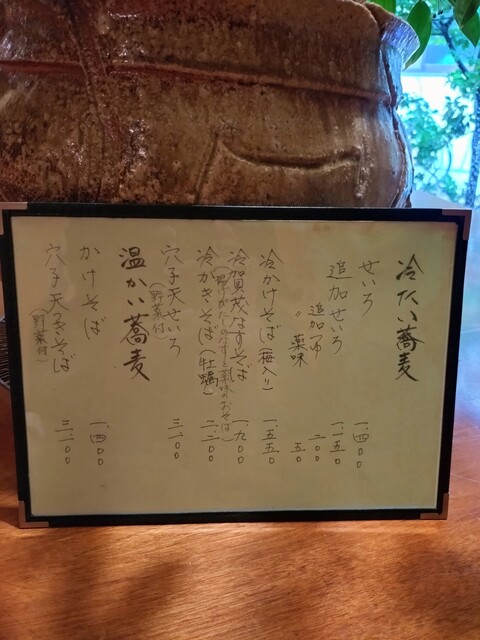 冷たい蕎麦
せいろ 一、四〇〇
追加せいろ 一、一五〇
追加つゆ 二〇〇
〃 薬味 五〇
冷かけそば(梅入り) 一、五五〇
冷賀茂なすそば 一、九〇〇
冷かきそば(牡蠣) 二、二〇〇
穴子天せいろ 三、一〇〇
(野菜付)
温かい蕎麦
かけそば 一、四〇〇
穴子天つきそば 三、一〇〇
(野菜付)